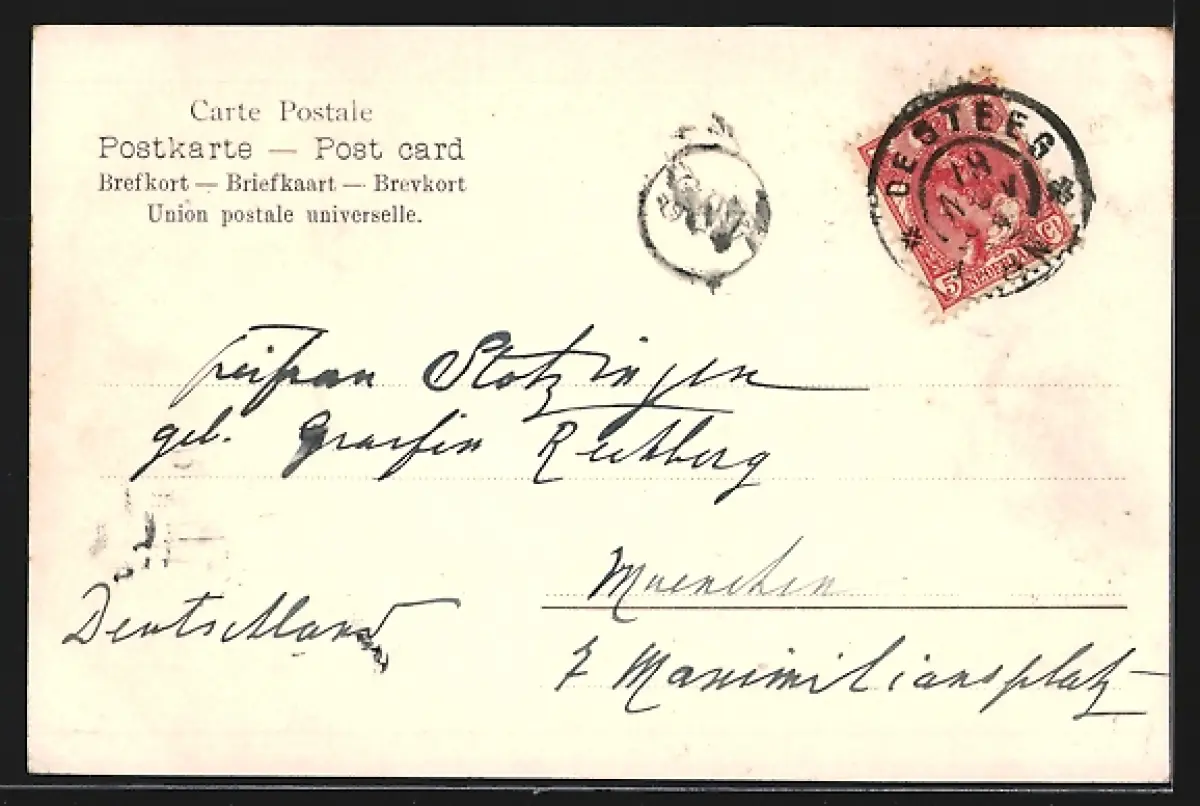 Carte Postale
Postkarte — Post card
Brefkort — Briefkaart — Brevkort
Union postale universelle.
DE STEEG
5 Ct
Freifrau Stotzingen
geb. Graefin Rechberg
Muenchen
Deutschland
7 Maximiliansplatz